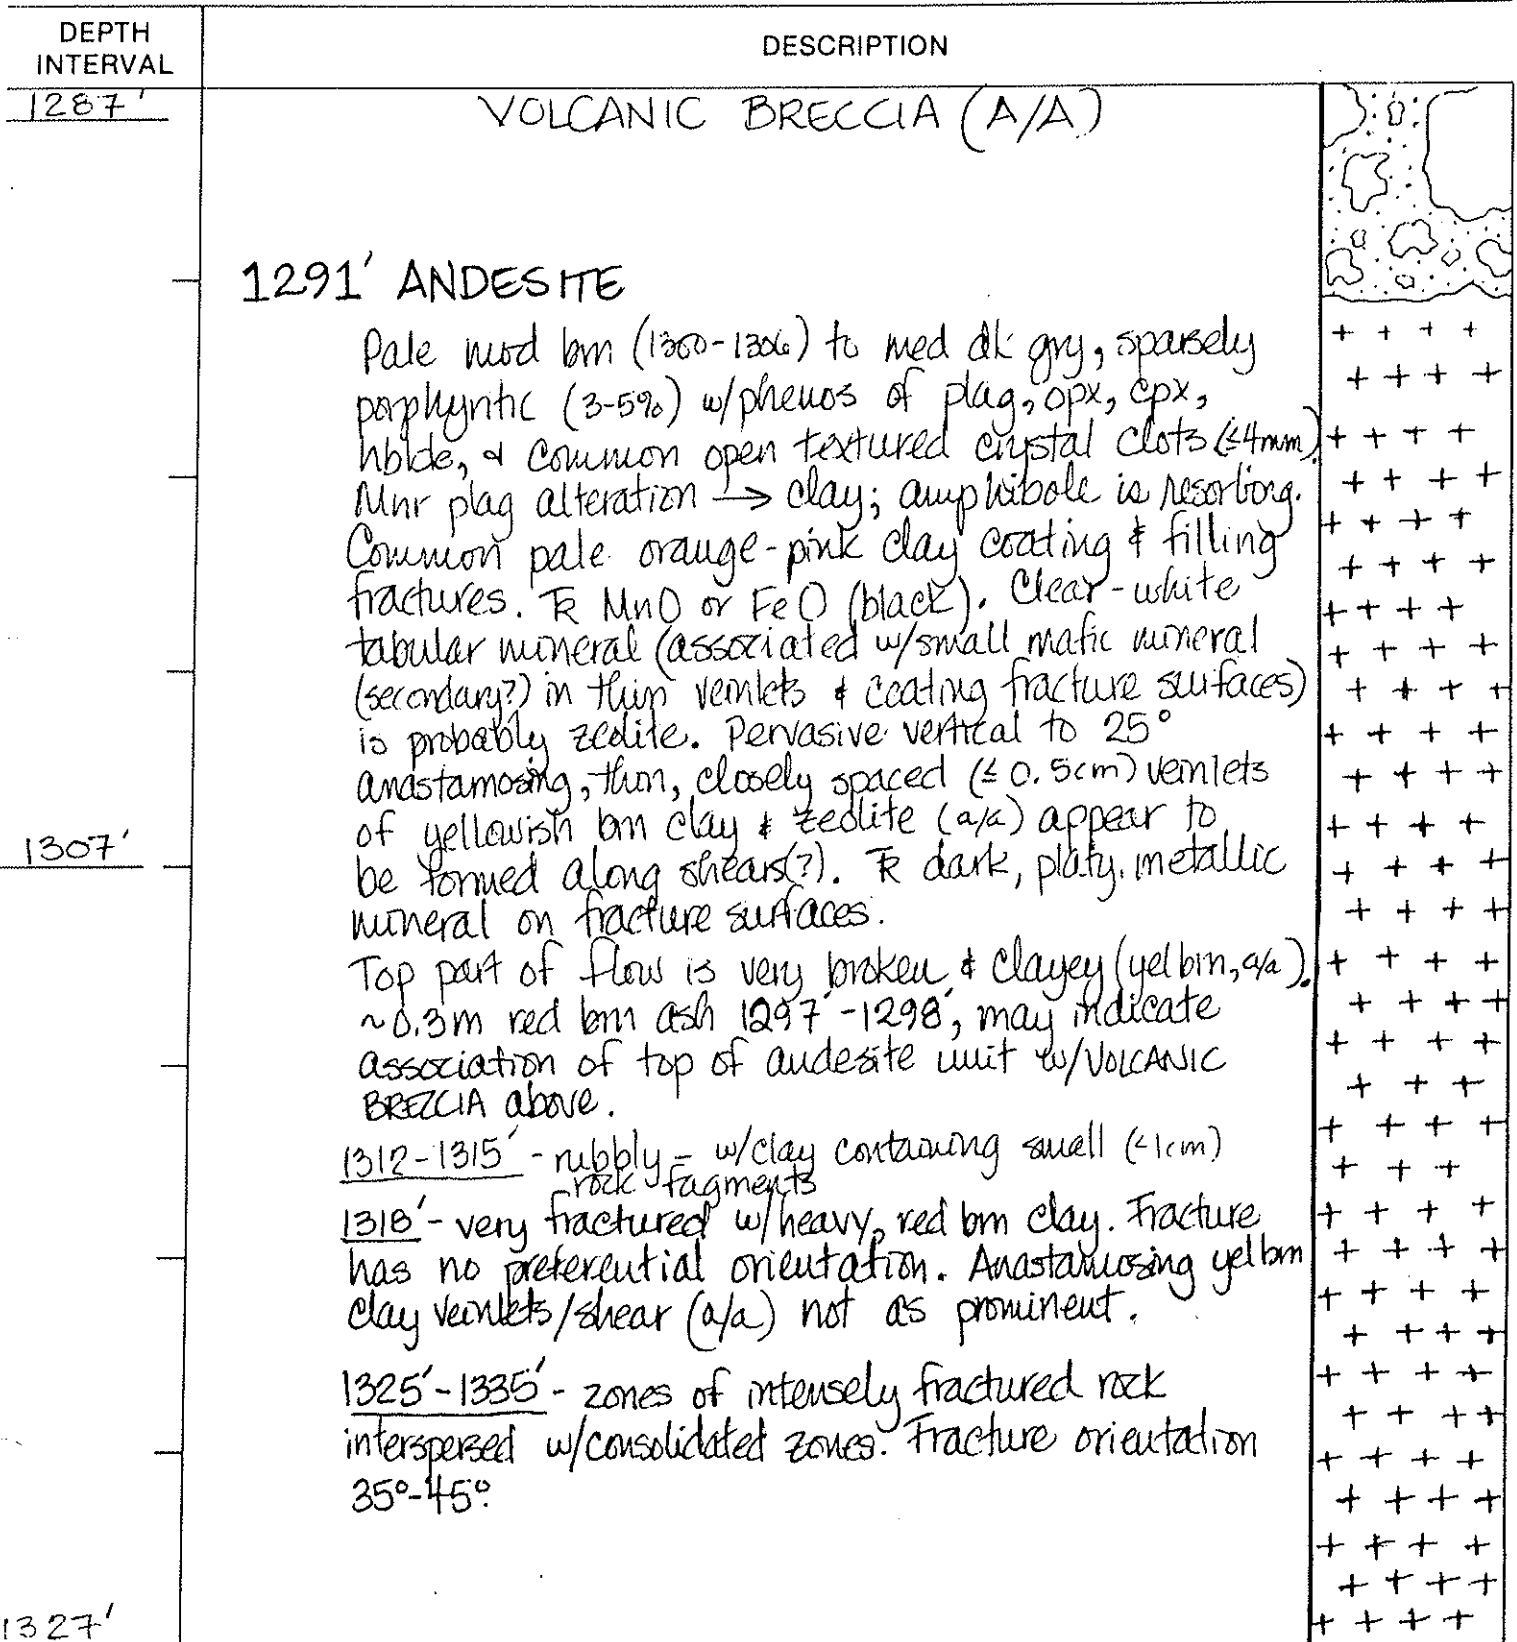 DEPTH
INTERVAL
DESCRIPTION
1287'
VOLCANIC BRECCIA (A/A)
1291' ANDESITE
Pale mod brn (1300-1306) to med dk gry, sparsely
porphyritic (3-5%) w/phenos of plag, opx, cpx,
hblde, & common open textured crystal clots (≤4mm).
Mnr plag alteration → clay; amphibole is resorbing.
Common pale orange-pink clay coating & filling
fractures. TR MnO or FeO (black). Clear-white
tabular mineral (associated w/small mafic mineral
(secondary?) in thin veinlets & coating fracture surfaces)
is probably zeolite. Pervasive vertical to 25°
anastamosing, thin, closely spaced (≤ 0.5cm) veinlets
of yellowish brn clay & zeolite (a/a) appear to
1307'
be formed along shears(?). TR dark, platy, metallic
mineral on fracture surfaces.
Top part of flow is very broken & clayey (yel brn, a/a).
~0.3m red brn ash 1297'-1298', may indicate
association of top of andesite unit w/VOLCANIC
BRECCIA above.
1312-1315' - rubbly - w/clay containing small (<1cm)
rock fagments
1318' - very fractured w/heavy, red brn clay. Fracture
has no preferential orientation. Anastamosing yel brn
clay veinlets/shear (a/a) not as prominent.
1325'-1335' - zones of intensely fractured rock
interspersed w/consolidated zones. Fracture orientation
35°-45°.
1327'